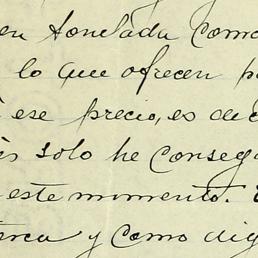 en tonelada como
lo que ofrecen
ese precio, es de
solo he conseg
este momento.
y como dig